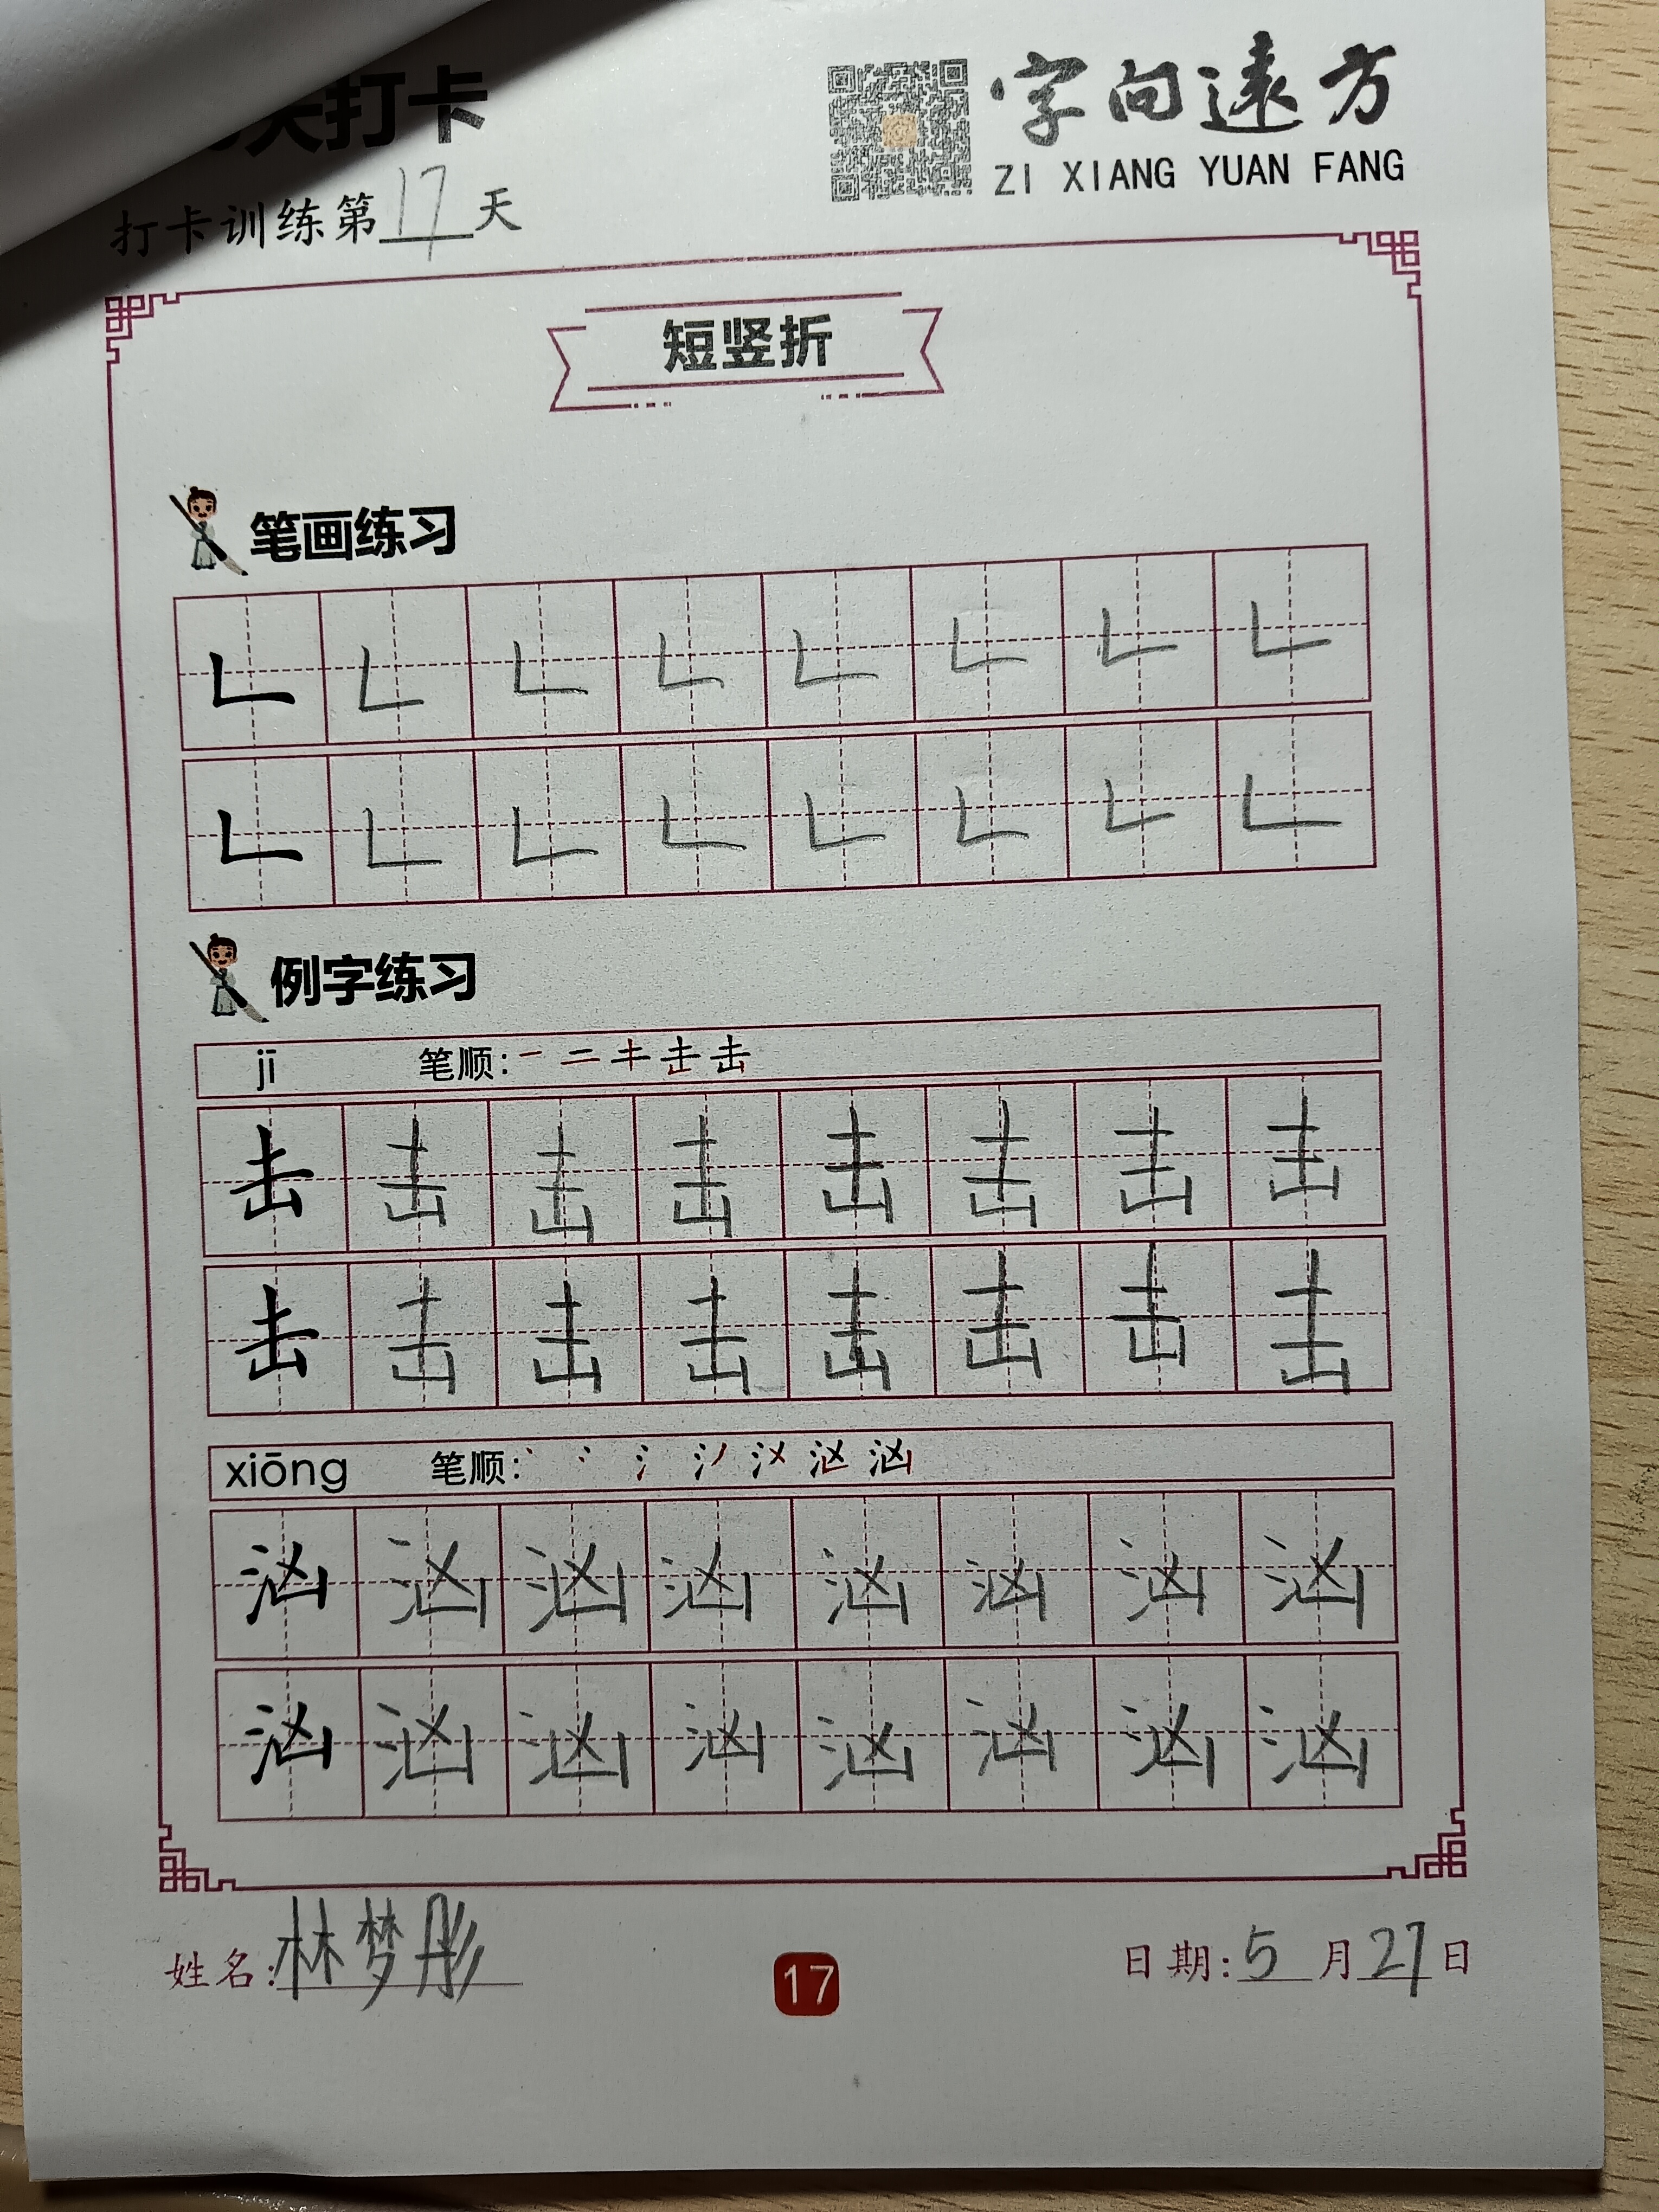 天打卡
字向遠方
ZI XIANG YUAN FANG
打卡训练第17天
短竖折
笔画练习
𠃊 𠃊 𠃊 𠃊 𠃊 𠃊 𠃊 𠃊
𠃊 𠃊 𠃊 𠃊 𠃊 𠃊 𠃊 𠃊
例字练习
jī 笔顺: 一 二 キ 击 击
击 击 击 击 击 击 击 击
击 击 击 击 击 击 击 击
xiōng 笔顺: 丶 冫 氵 汹
汹 汹 汹 汹 汹 汹 汹 汹
汹 汹 汹 汹 汹 汹 汹 汹
姓名:林梦彤
17
日期:5月27日